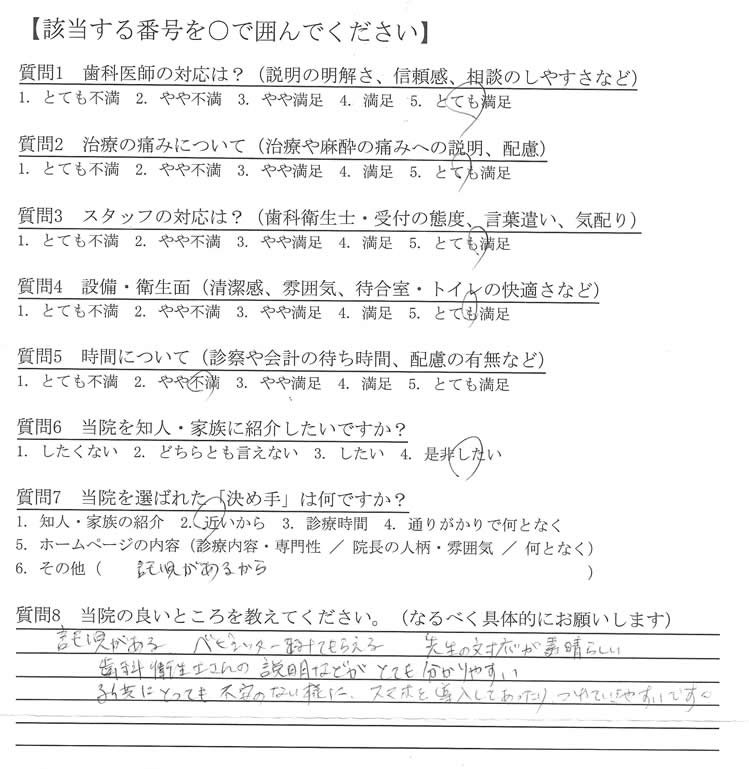 【該当する番号を〇で囲んでください】
質問1 歯科医師の対応は？（説明の明解さ、信頼感、相談のしやすさなど）
1. とても不満 2. やや不満 3. やや満足 4. 満足 5. とても満足
質問2 治療の痛みについて（治療や麻酔の痛みへの説明、配慮）
1. とても不満 2. やや不満 3. やや満足 4. 満足 5. とても満足
質問3 スタッフの対応は？（歯科衛生士・受付の態度、言葉遣い、気配り）
1. とても不満 2. やや不満 3. やや満足 4. 満足 5. とても満足
質問4 設備・衛生面（清潔感、雰囲気、待合室・トイレの快適さなど）
1. とても不満 2. やや不満 3. やや満足 4. 満足 5. とても満足
質問5 時間について（診察や会計の待ち時間、配慮の有無など）
1. とても不満 2. やや不満 3. やや満足 4. 満足 5. とても満足
質問6 当院を知人・家族に紹介したいですか？
1. したくない 2. どちらとも言えない 3. したい 4. 是非したい
質問7 当院を選ばれた「決め手」は何ですか？
1. 知人・家族の紹介 2. 近いから 3. 診療時間 4. 通りがかりで何となく
5. ホームページの内容（診療内容・専門性 ／ 院長の人柄・雰囲気 ／ 何となく）
6. その他（ 託児があるから ）
質問8 当院の良いところを教えてください。（なるべく具体的にお願いします）
託児がある ベビーシッター してもらえる 先生の対応が素晴らしい
歯科衛生士さんの説明などがとても分かりやすい
子供にとっても不安のない様に、スマホを導入してあったり、つれていきやすいです。